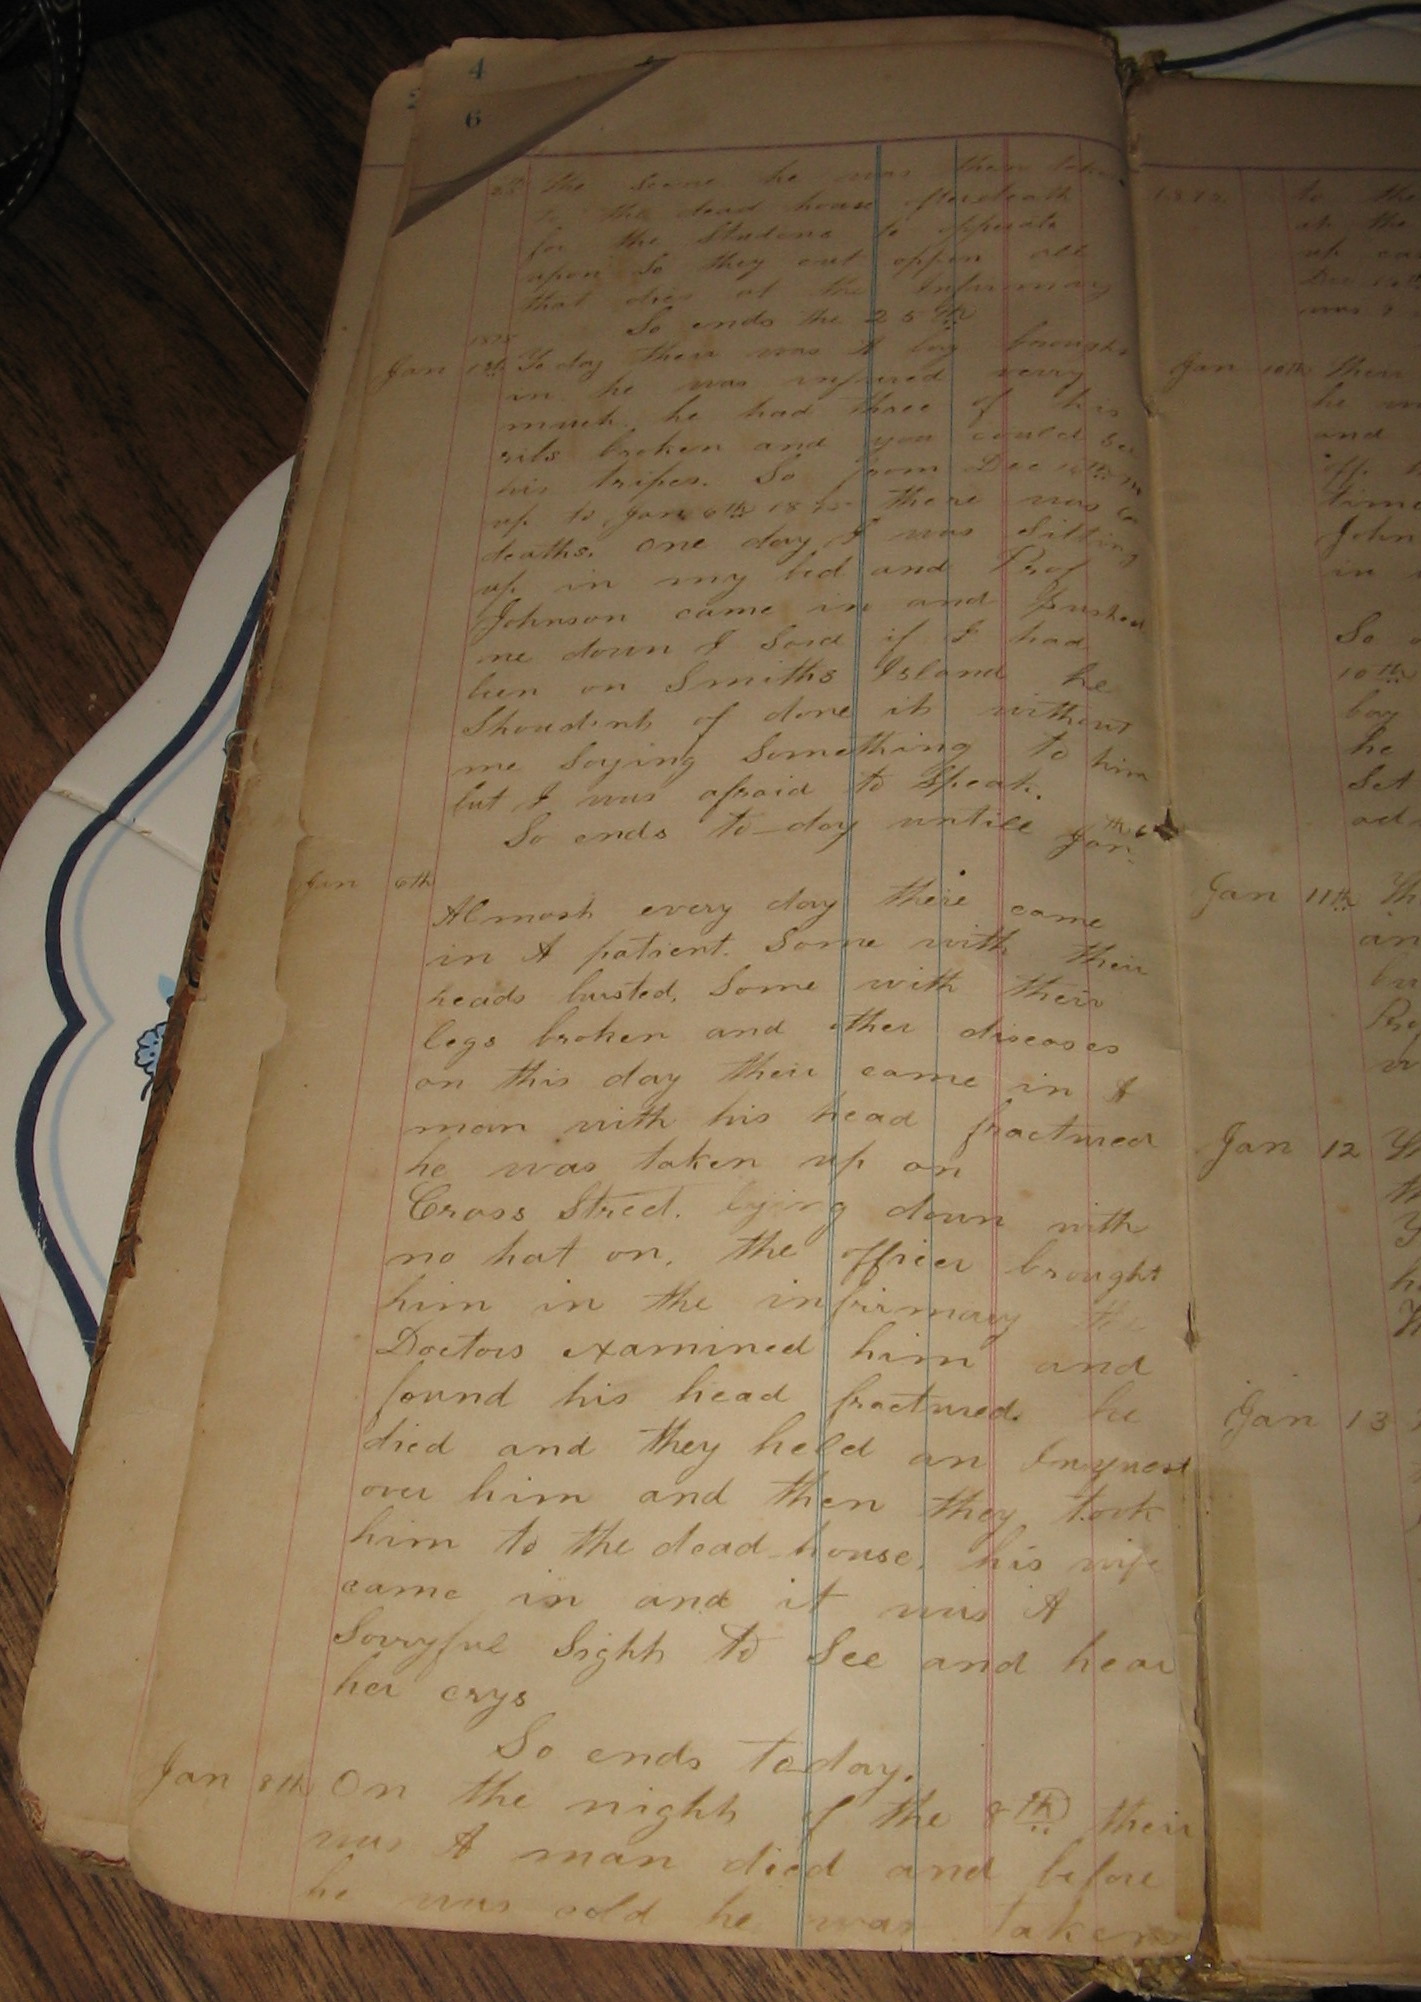 4
6
25th the Scene he was then taken
to the dead house after death
for the Students to opperate
upon So they cut oppen all
that dies at the Infirmary
So ends the 25th
1875
Jan 1st To day their was A boy brought
in he was injured verry
much. he had three of his
ribs broken and you could see
his tripes. So from Dec 14th
up to Jan 6th 1875 there was
deaths. One day I was Sitting
up in my bed and Prof
Johnson came in and pushed
me down I Said if I had
been on Smiths Island he
Shoudent of done it without
me Saying Something to him
but I was afraid to Speak.
So ends to-day untill Jan 6th
Jan 6th
Almost every day their came
in A patient. Some with their
heads busted, Some with their
legs broken and other diseases
on this day their came in A
man with his head fractured
he was taken up on
Cross Street. lying down with
no hat on. the officer brought
him in the infirmary the
Doctors examined him and
found his head fractured. he
died and they held an Inquest
over him and then they took
him to the dead-house. his wife
came in and it was A
Sorryful Sight to See and hear
her crys
So ends today.
Jan 8th On the night of the 8th their
was A man died and before
he was cold he was taken
1875 to the
at the
up
Dec
was
Jan 10th their
he
and
off.
time
John
in
So
10th
boy
he
Set
Jan 11th Th
an
Jan 12
th
Jan 13